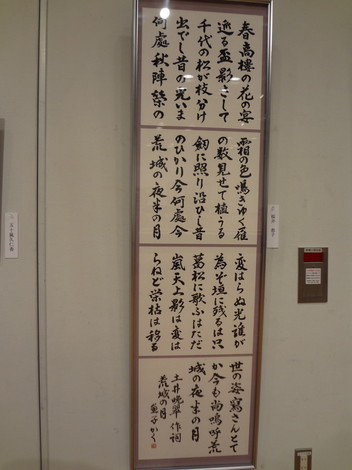 春高樓の花の宴
遮る盃影さして
千代の松が枝分け
出でし昔の光いま
何處秋陣榮の
霜の色鳴きゆく雁
の数見せて植うる
剱に照り沿ひし昔
のひかり今何處今
荒城の夜半の月
変はらぬ光誰が
為そ垣に残るは只
葛松に歌ふはただ
嵐天上影は変は
らねど栄枯は移る
世の姿寫さんとて
か今も尚嗚呼荒
城の夜半の月
土井晩翠作詞
荒城の月
かく